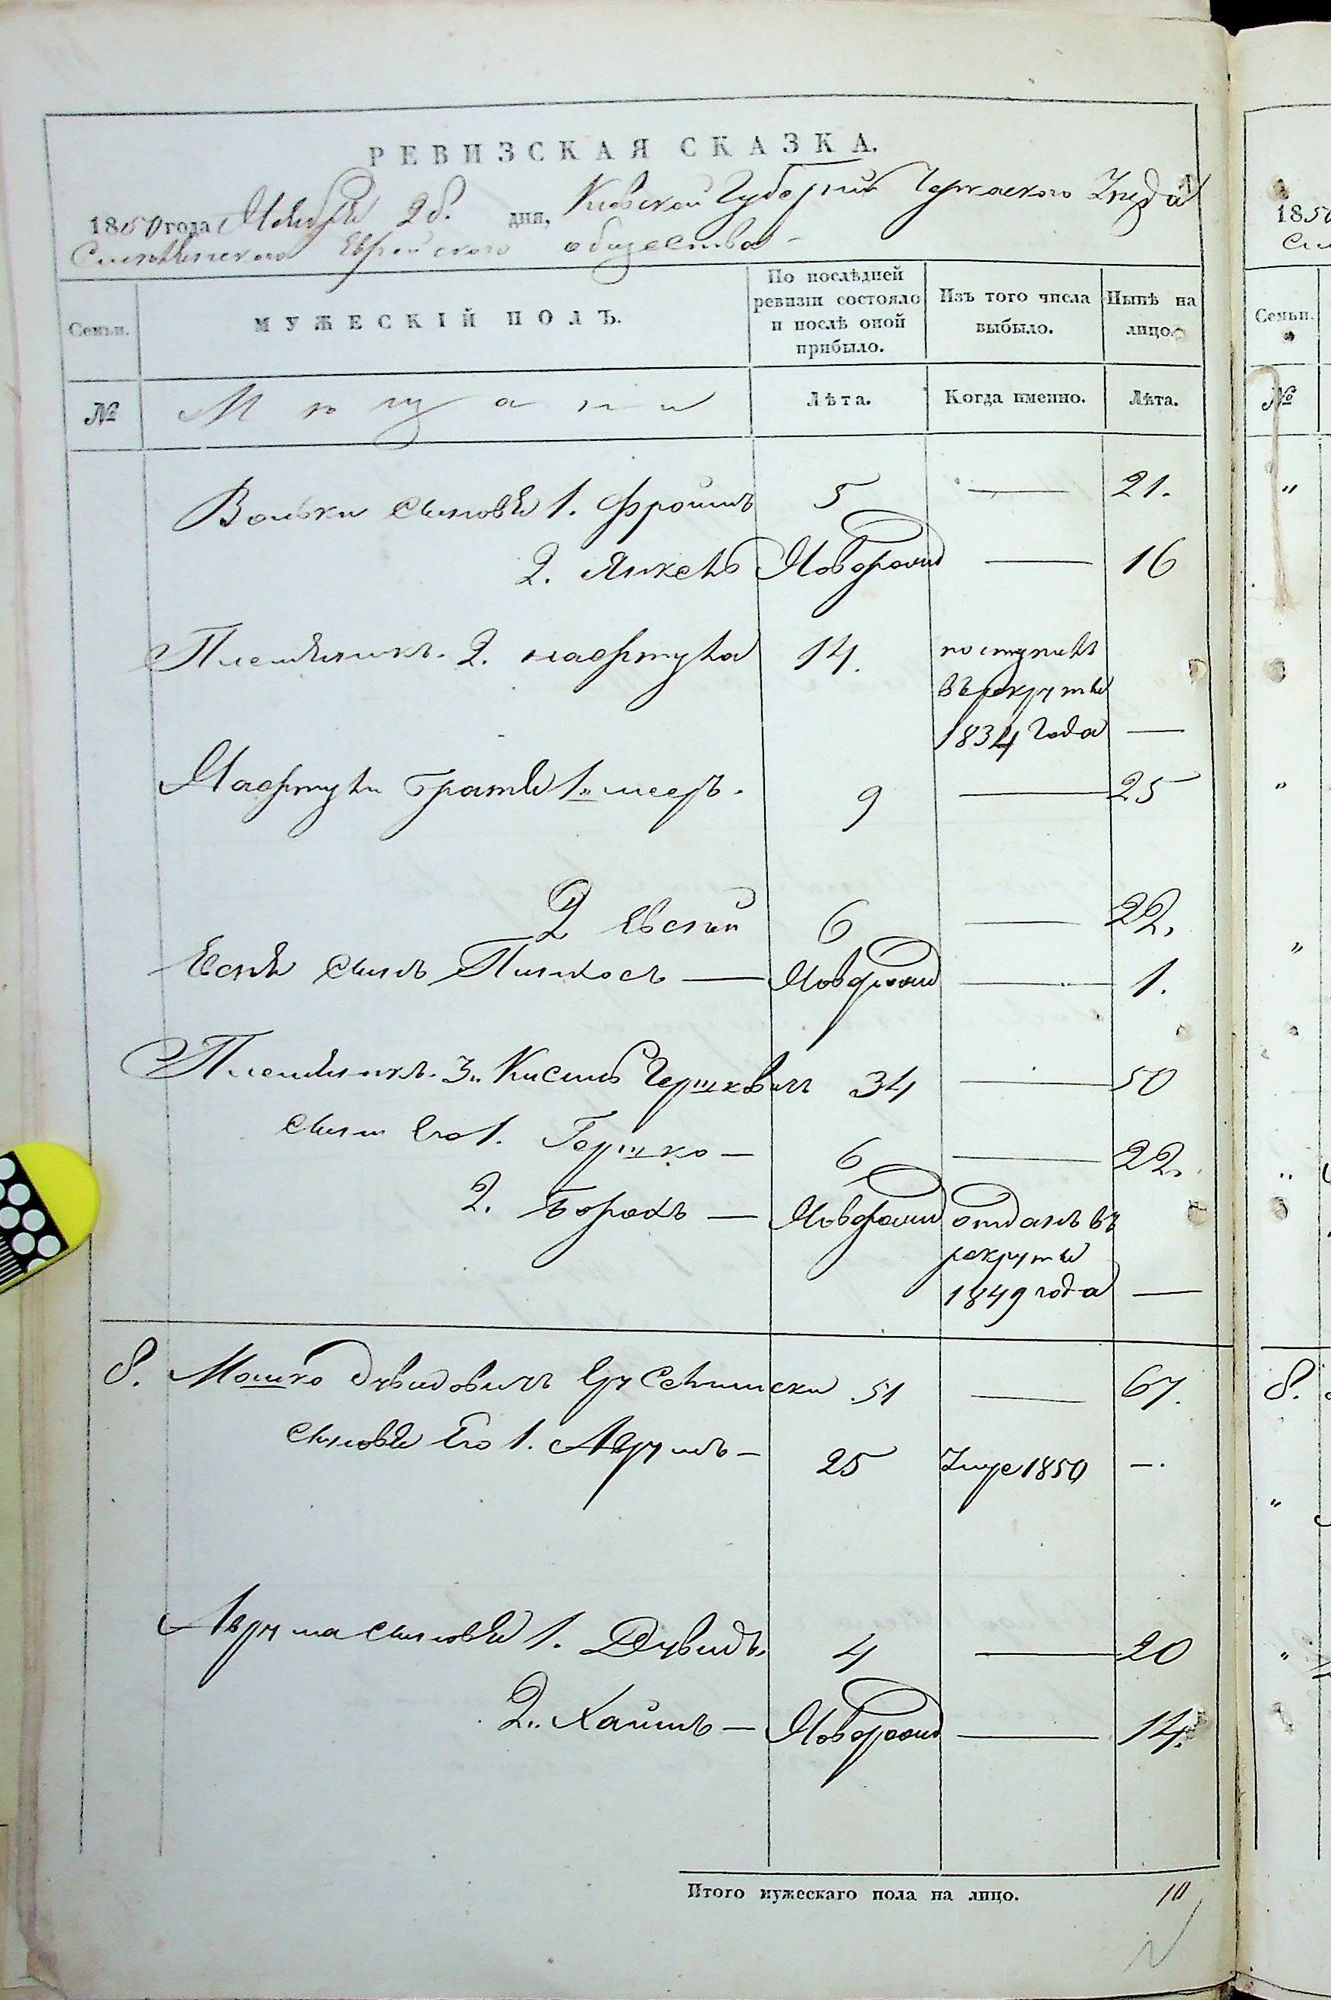 РЕВИЗСКАЯ СКАЗКА.
1850 года Ноября 28. дня, Киевской Губернии Черкаского Уезда
Смелянского Еврейского общества
Семьи. МУЖЕСКІЙ ПОЛЪ. По послѣдней ревизіи состояло и послѣ оной прибыло. Изъ того числа выбыло. Нынѣ на лицо.
№ Мещани Лѣта. Когда именно. Лѣта.
Вольки сыновья 1. Фроимъ 5 — 21.
2. Янкель Новорожд — 16
Племянникъ. 2. 14. поступилъ
въ рекруты
1834 года —
братья 1. 9 — 25
2 Евсей 6 — 22.
сынъ Пинхосъ — Новорожд — 1.
Племянникъ. 3. Кисиль Гершковичъ 34 — 50
сыны его 1. Гершко — 6 — 22.
2. Борохъ — Новорожд отданъ въ
рекруты
1849 года —
8. Мошко Дувидовичъ 51 — 67.
сыновья его 1. Аврумъ — 25 Умре 1850 —.
Аврума сыновья 1. Дувидъ. 4 — 20
2. Хаимъ — Новорожд — 14.
Итого мужескаго пола на лицо. 10
1850
Семьи.
№
8.